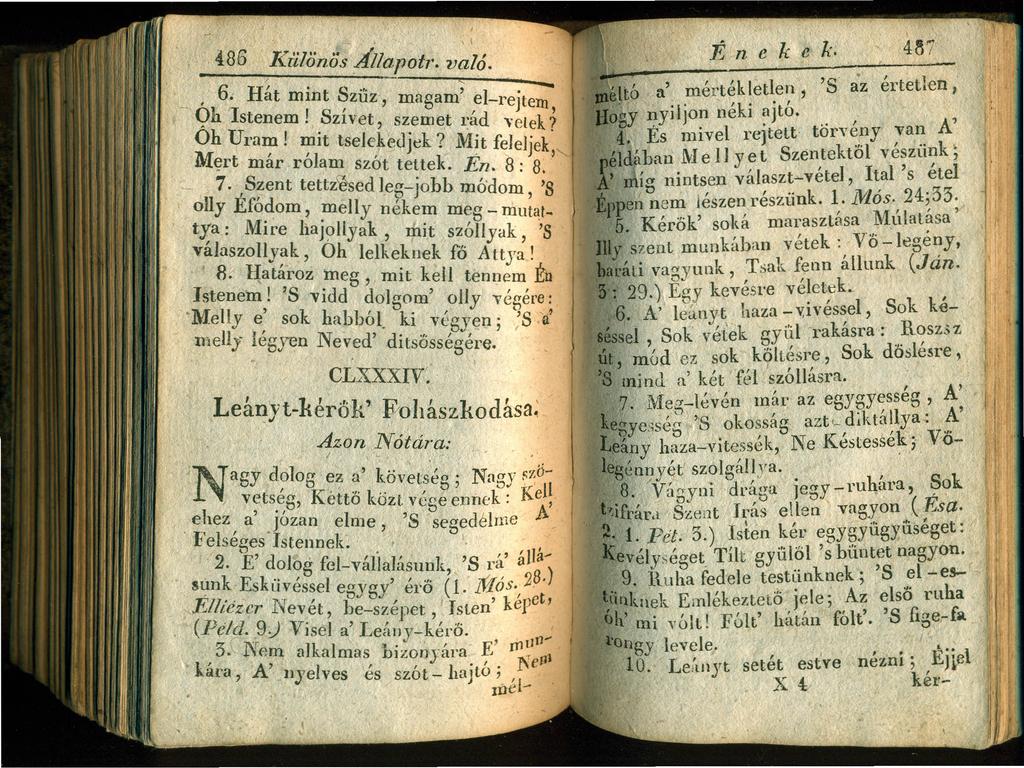 486 Különös Állapotr. való.
6. Hát mint Szűz, magam' el-rejtem,
Óh Istenem! Szívet, szemet rád vetek?
Óh Uram! mit tselekedjek? Mit feleljek,
Mert már rólam szót tettek. En. 8: 8.
7. Szent tettzésed leg-jobb módom, 'S
olly Éfódom, melly nékem meg-mutat-
tya: Mire hajollyak, mit szóllyak, 'S
válaszollyak, Oh lelkeknek fő Attya!
8. Határoz meg, mit kell tennem Én
Istenem! 'S vidd dolgom' olly végére:
Melly e' sok habból ki végyen; 'S a'
melly légyen Neved' ditsősségére.
CLXXXIV.
Leányt-kérők' Fohászkodása.
Azon Nótára:
Nagy dolog ez a' követség; Nagy szö-
vetség, Kettő közt vége ennek: Kell
ehez a' józan elme, 'S segedelme A'
Felséges Istennek.
2. E' dolog fel-vállalásunk, 'S rá' állá-
sunk Esküvéssel egygy' érő (1. Mós. 28.)
Elliézer Nevét, be-szépet, Isten' képet,
(Péld. 9.) Visel a' Leány-kérő.
3. Nem alkalmas bizonyára E' mun-
kára, A' nyelves és szót-hajtó; Nem
mél-
Énekek. 487
méltó a' mértékletlen, 'S az értetlen,
Hogy nyiljon néki ajtó.
4. És mivel rejtett törvény van A'
példában Mellyet Szentektől vészünk;
A' míg nintsen választ-vétel, Ital 's étel
Éppen nem lészen részünk. 1. Mós. 24;33.
5. Kérők' soká marasztása Múlatása
Illy szent munkában vétek: Vő-legény,
baráti vagyunk, Tsak fenn állunk (Ján.
3: 29.) Egy kevésre véletek.
6. A' leányt haza-vivéssel, Sok ké-
séssel, Sok vétek gyűl rakásra: Roszsz
út, mód ez sok költésre, Sok döslésre,
'S mind a' két fél szóllásra.
7. Meg-lévén már az egygyesség, A'
kegyesség 'S okosság azt diktállya: A'
Leány haza-vitessék, Ne Késtessék; Vő-
legénnyét szolgállya.
8. Vágyni drága jegy-ruhára, Sok
tzifrára Szent Irás ellen vagyon (Ésa.
2. 1. Pét. 3.) Isten kér egygyügyűséget:
Kevélységet Tilt gyűlöl 's büntet nagyon.
9. Ruha fedele testünknek; 'S el-es-
tünknek Emlékeztető jele; Az első ruha
óh' mi vólt! Fólt' hátán fólt'. 'S fige-fa
rongy levele.
10. Leányt setét estve nézni; Éjjel
X 4 kér-